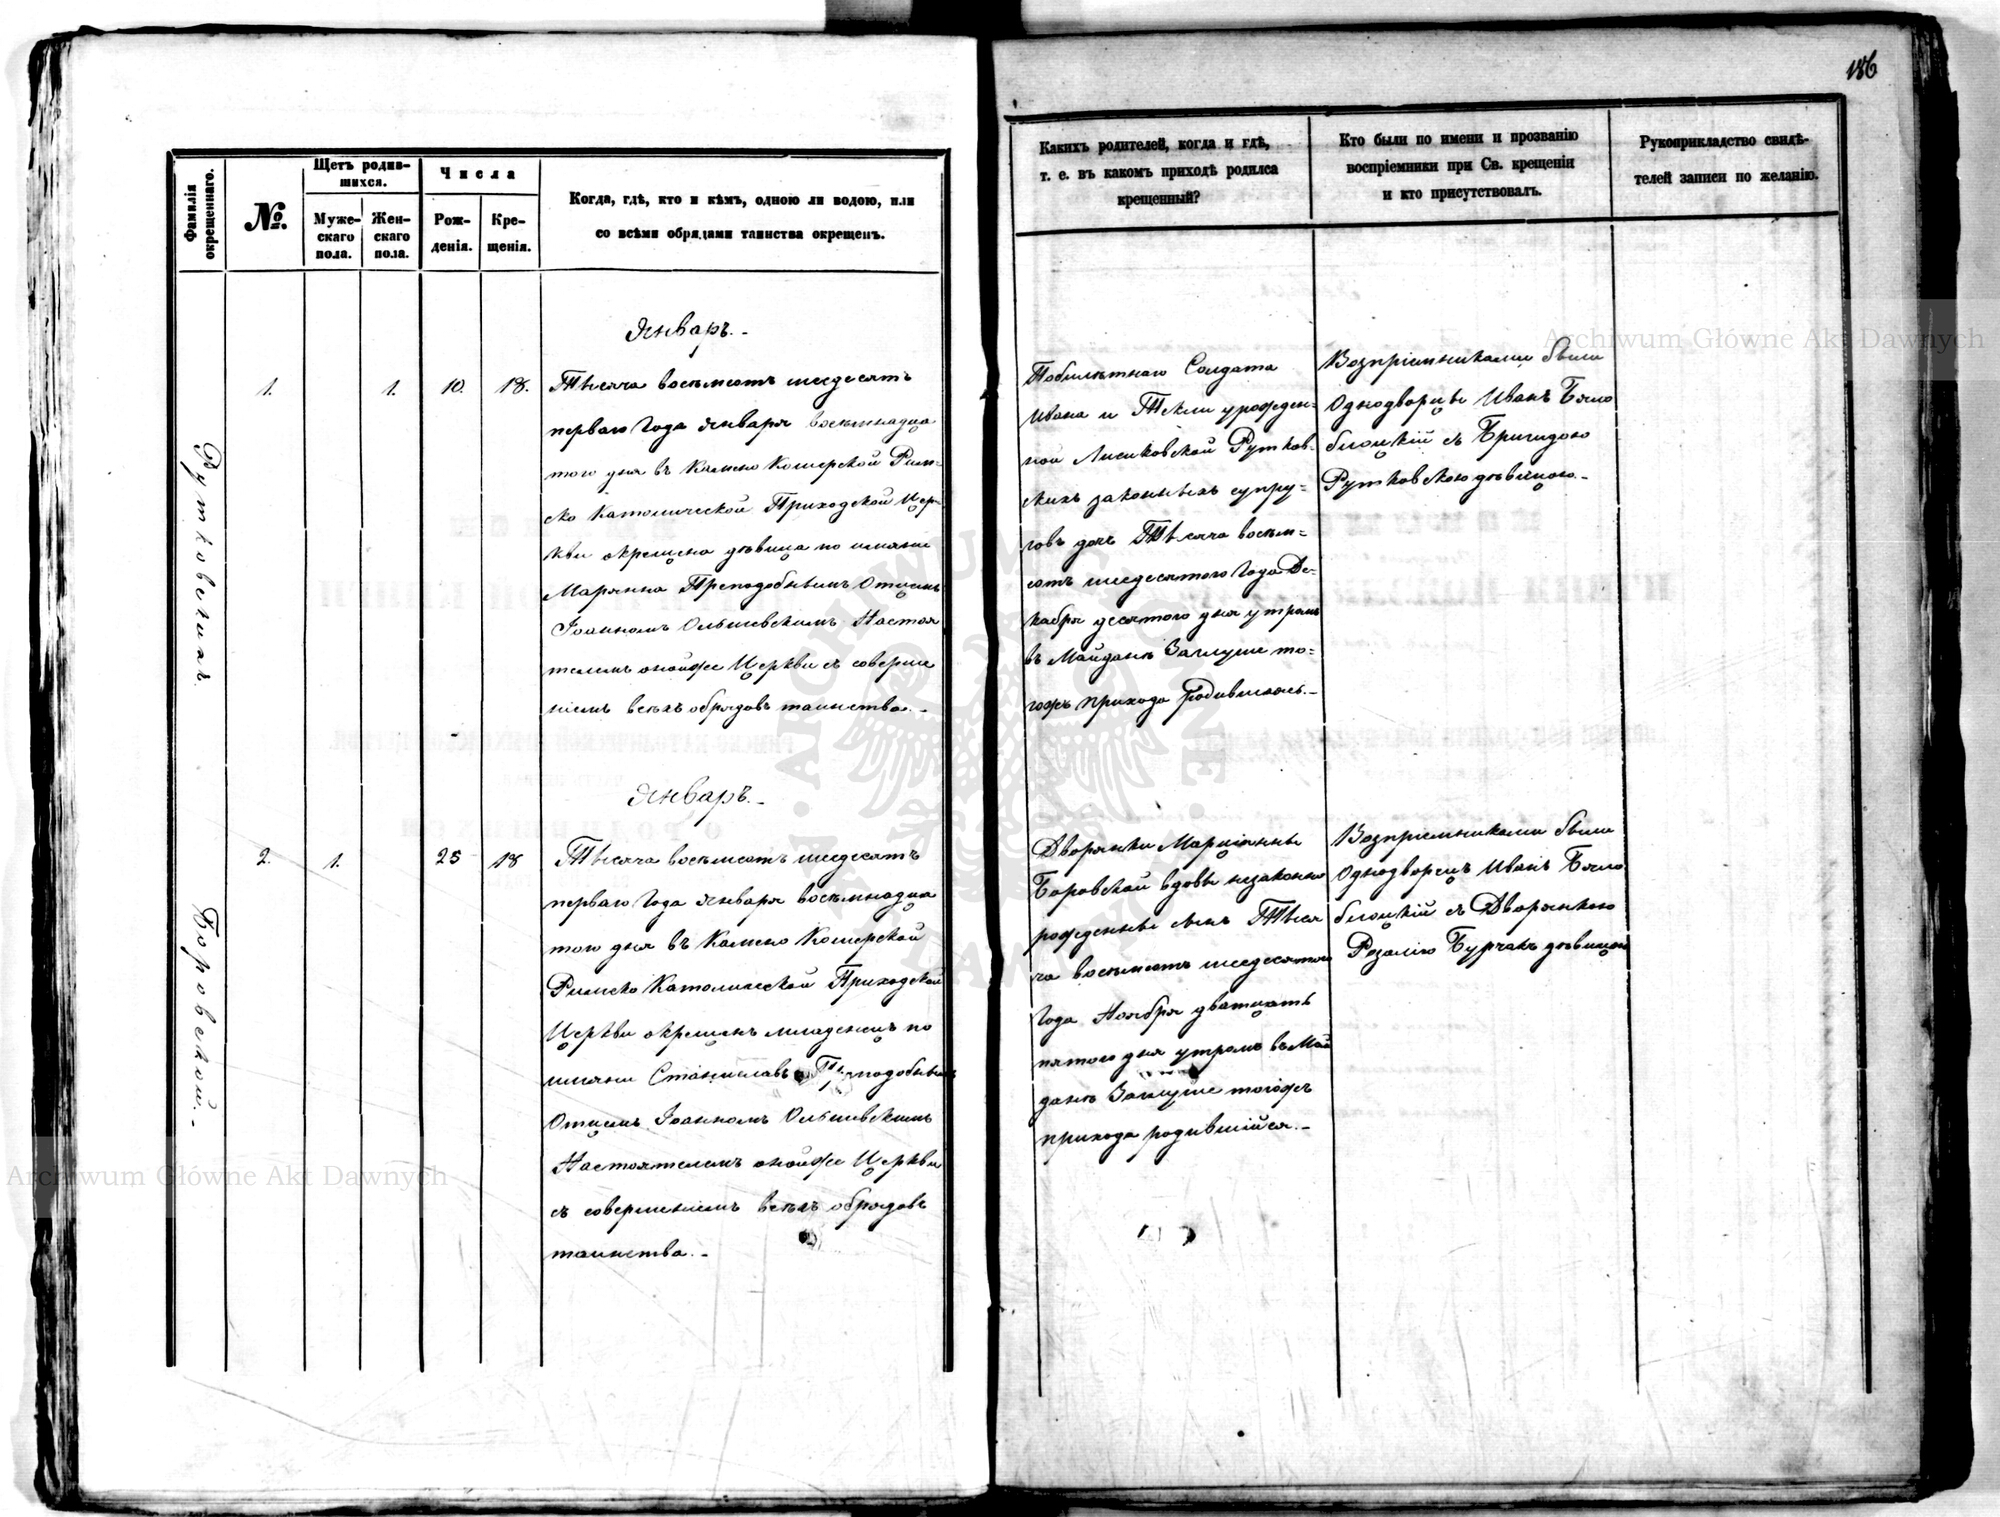 186
Фамилія окрещеннаго.
№.
Щетъ родив-
шихся.
Муже-
скаго
пола.
Жен-
скаго
пола.
Числа
Рож-
денія.
Кре-
щенія.
Когда, гдѣ, кто и кѣмъ, одною ли водою, или
со всѣми обрядами таинства окрещенъ.
Каких родителей, когда и гдѣ,
т. е. въ какомъ приходѣ родился
крещенный?
Кто были по имени и прозванію
воспріемники при Св. крещеніи
и кто присутствовалъ.
Рукоприкладство свидѣ-
телей записи по желанію.
Рутковскихъ
Январъ.-
1. 1. 10. 18.
Тысяча восемсотъ шедесятъ
перваго Года Января восемнадца
того дня въ Камено Коширской Рим-
ско Католической Приходской Цер-
кви окрещена дѣвица по имяни
Марянна Преподобнымъ Отцемъ
Іоанномъ Ольшевскимъ Настоя
телемъ онойже Церкви съ соверше
ніемъ всѣхъ обрядовъ таинства.-
Побилетнаго Солдата
Ивана и Текли урожден-
ной Рутков-
скихъ законныхъ супру-
говъ дочъ Тысяча восем-
сотъ шедесятого Года Де-
кабря десятого дня утромъ
въ Майданѣ Заглуше то-
гожъ прихода родившаясь.-
Возпріемниками были
Однодворцы Иванъ Бяло
блоцкій съ Бригидою
Рутковскою дѣвицою.-
Боровской.-
Январъ.-
2. 1. 25 18
Тысяча восемсотъ шедесятъ
перваго Года Января восемнадца
того дня въ Камено Коширской
Римско Католической Приходской
Церкви окрещенъ младенецъ по
имяни Станиславъ Преподобнымъ
Отцемъ Іоанномъ Ольшевскимъ
Настоятелемъ онойже Церкви
съ совершеніемъ всѣхъ обрядовъ
таинства.-
Дворянки Марціянны
Боровской вдовы незаконно
рожденный сынъ Тыся
ча восемсотъ шедесятого
Года Ноября дватцать
пятого дня утромъ въ Май
данѣ Заглуше тогожъ
прихода родившійся.-
Возпріемниками были
Однодворецъ Иванъ Бяло
блоцкій съ Дворянкою
Розалію Бурчакъ дѣвицою
Archiwum Główne Akt Dawnych
Archiwum Główne Akt Dawnych